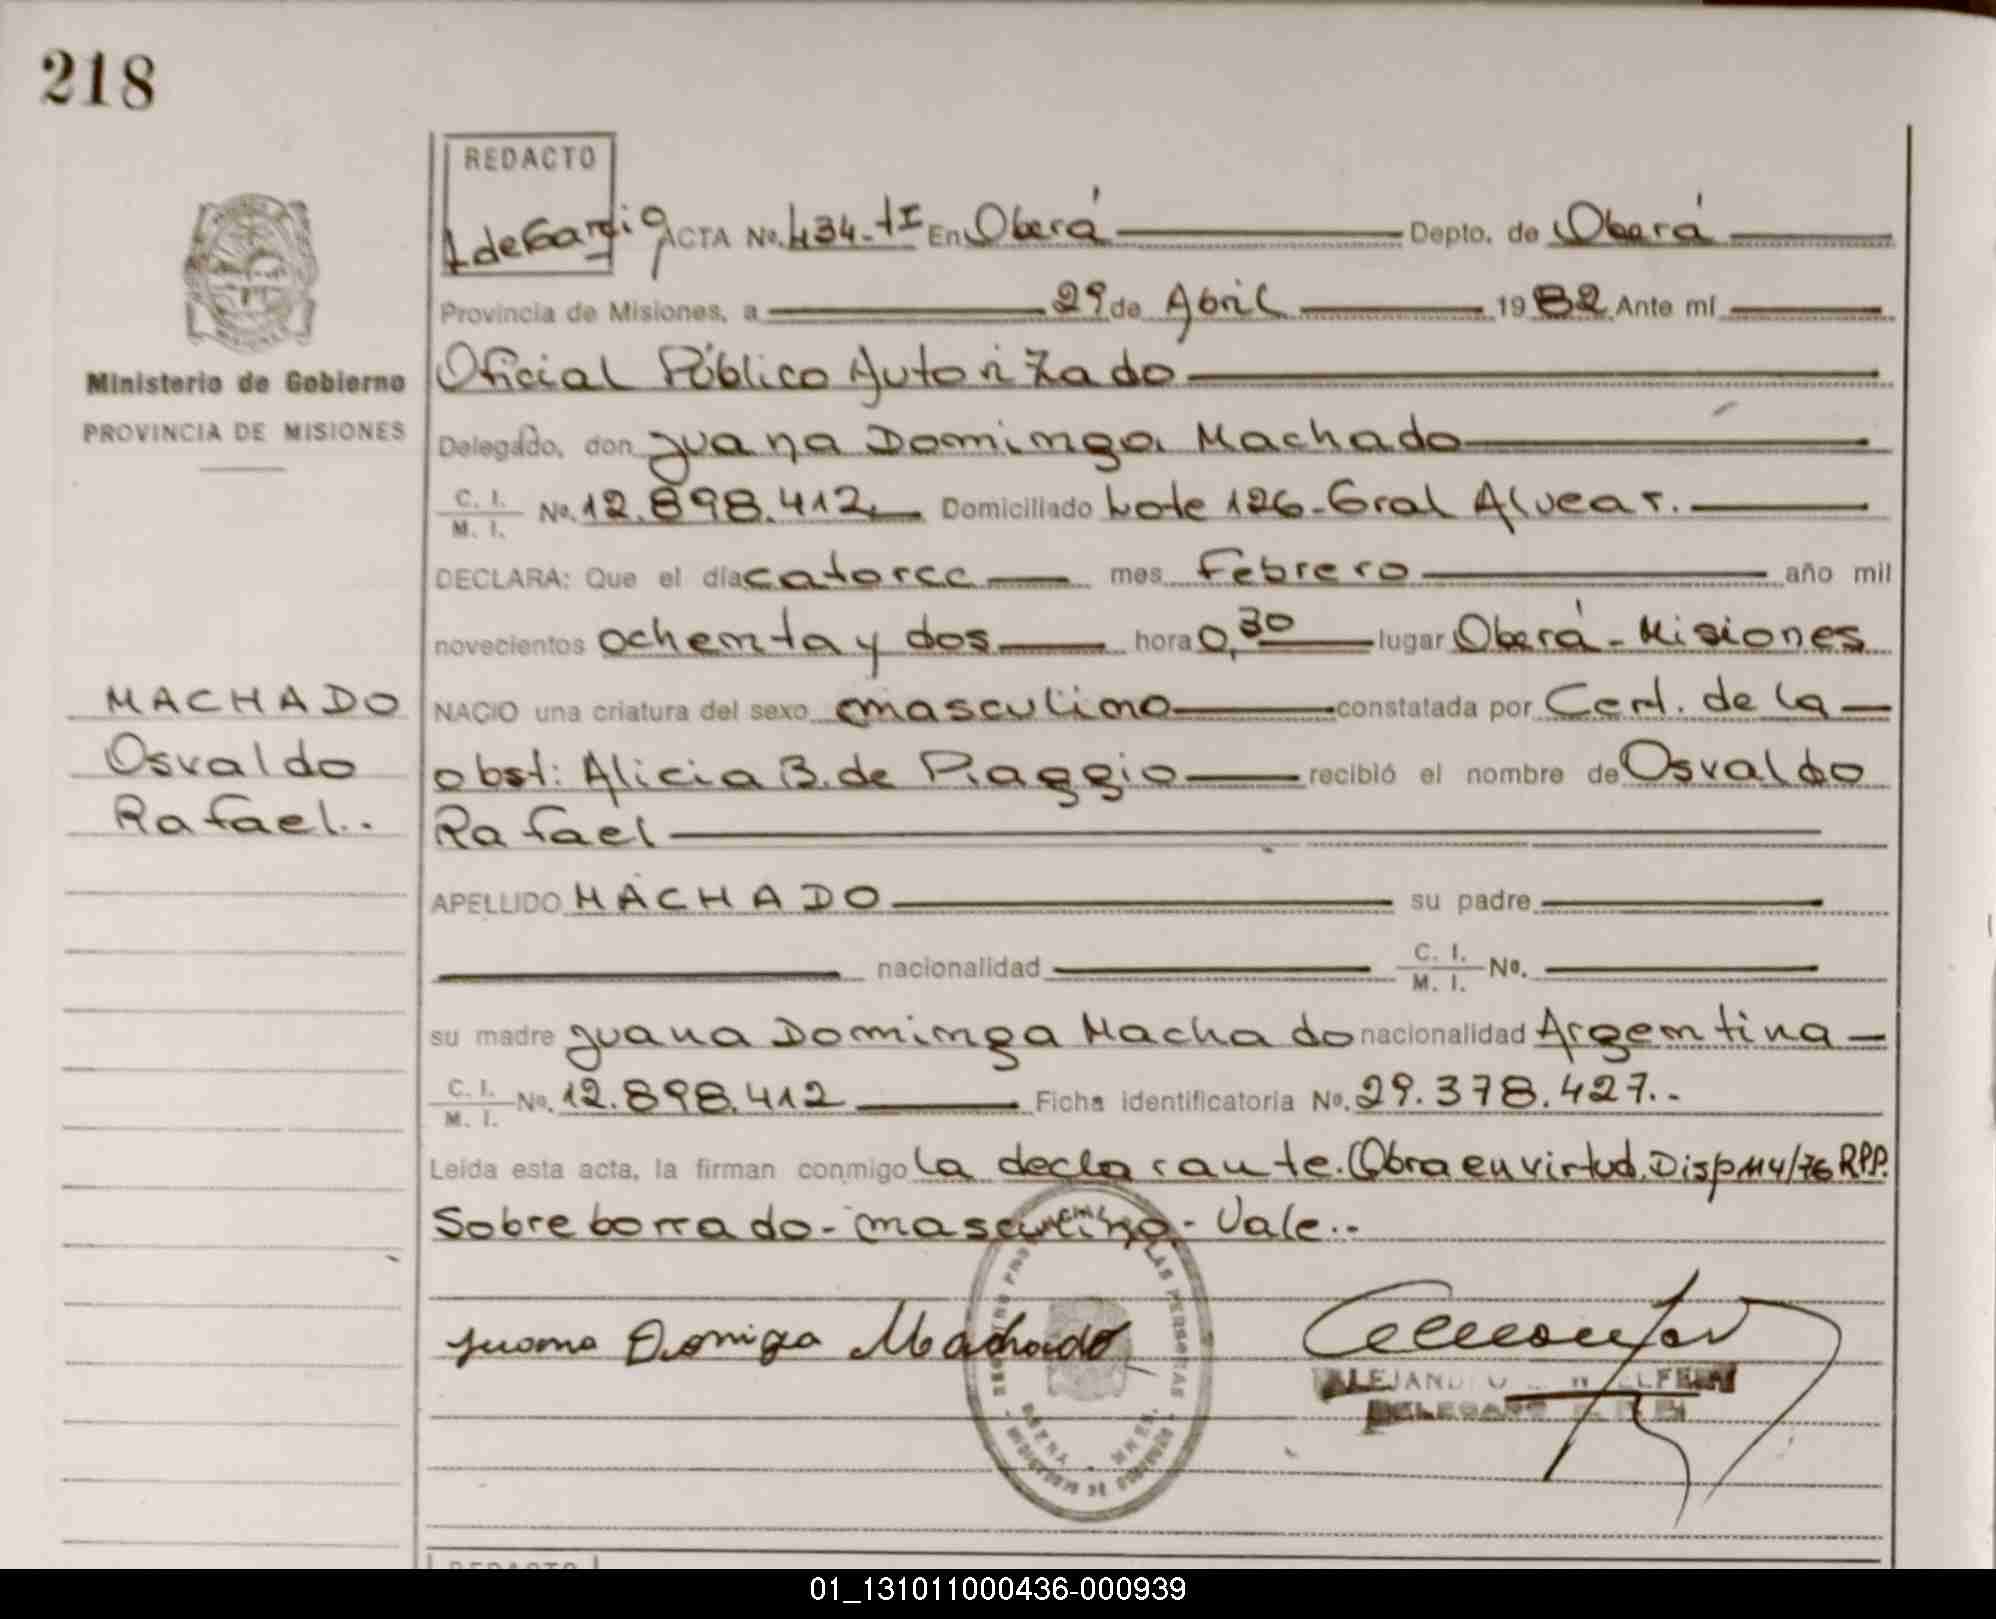 218
REDACTO
ACTA No. 434-tI En Oberá Depto. de Oberá
Provincia de Misiones, a 29 de Abril 1982 Ante mi
Ministerio de Gobierno
PROVINCIA DE MISIONES
Oficial Público Autorizado
Delegado, don Juana Dominga Machado
C. I.
M. I. No. 12.898.412 Domiciliado Lote 126-Gral Alvear.
DECLARA: Que el día catorce mes Febrero año mil
novecientos ochenta y dos hora 0,30 lugar Oberá-Misiones
MACHADO
Osvaldo
Rafael..
NACIO una criatura del sexo masculino constatada por Cert. de la
obst: Alicia B. de Piaggio recibió el nombre de Osvaldo
Rafael
APELLIDO MACHADO su padre
nacionalidad C. I.
M. I. No.
su madre Juana Dominga Machado nacionalidad Argentina
C. I.
M. I. No. 12.898.412 Ficha identificatoria No. 29.378.427..
Leída esta acta, la firman conmigo la declarante. Obra en virtud. Disp 114/76 RPP.
Sobre borrado-masculino-Vale..
Juana Dominga Machado
01_131011000436-000939